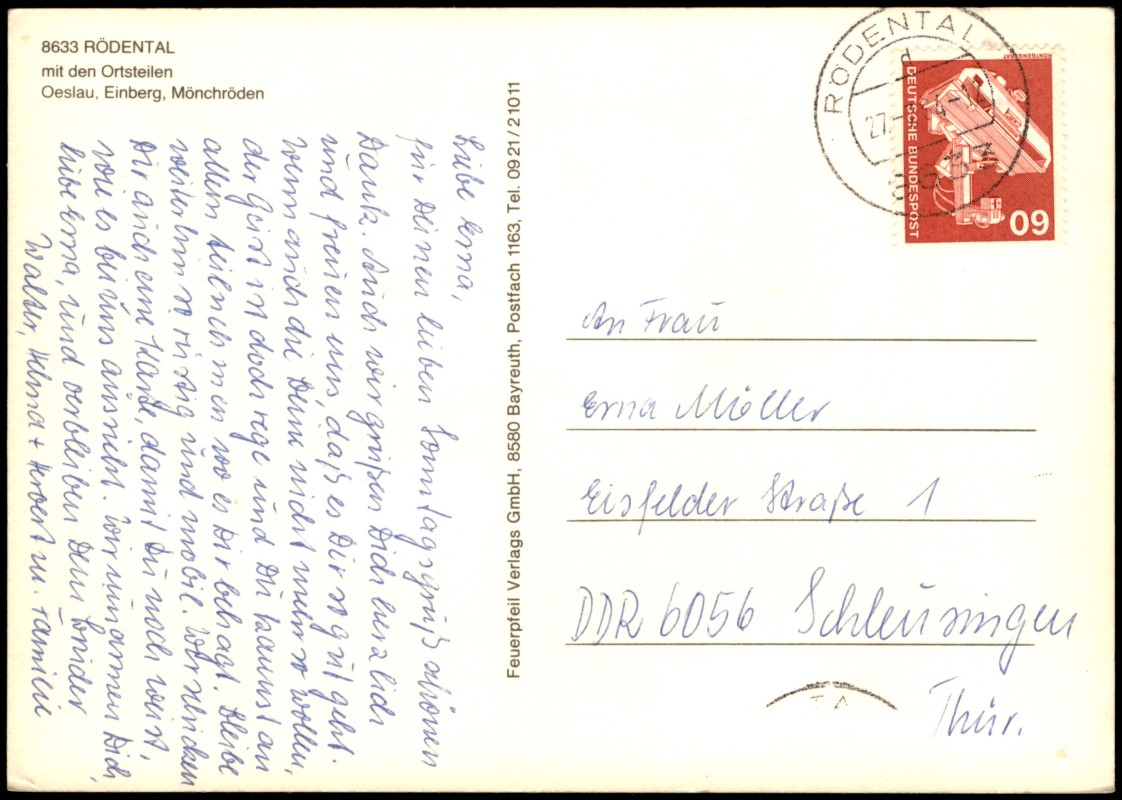 8633 RÖDENTAL
mit den Ortsteilen
Oeslau, Einberg, Mönchröden
Liebe Erna,
für Deinen lieben Sonntagsgruß schönen
Dank. Auch wir grüßen Dich herzlich
und freuen uns, daß es Dir so gut geht.
Wenn auch die Beine nicht mehr so wollen,
der Geist ist doch rege und Du kannst an
allem teilnehmen wo es Dir behagt. Bleibe
weiterhin so rüstig und mobil. Wir schicken
Dir auch eine Karte, damit Du noch weist,
wie es bei uns aussieht. Wir umarmen Dich,
liebe Erna, und verbleiben Dein Bruder
Walter, Helma + Herbert m. Familie
Feuerpfeil Verlags GmbH, 8580 Bayreuth, Postfach 1163, Tel. 0921/21011
RÖDENTAL
d
8633
RÖNTGENGERÄT
DEUTSCHE BUNDESPOST
60
An Frau
Erna Möller
Eisfelder Straße 1
DDR 6056 Schleusingen
Thür.